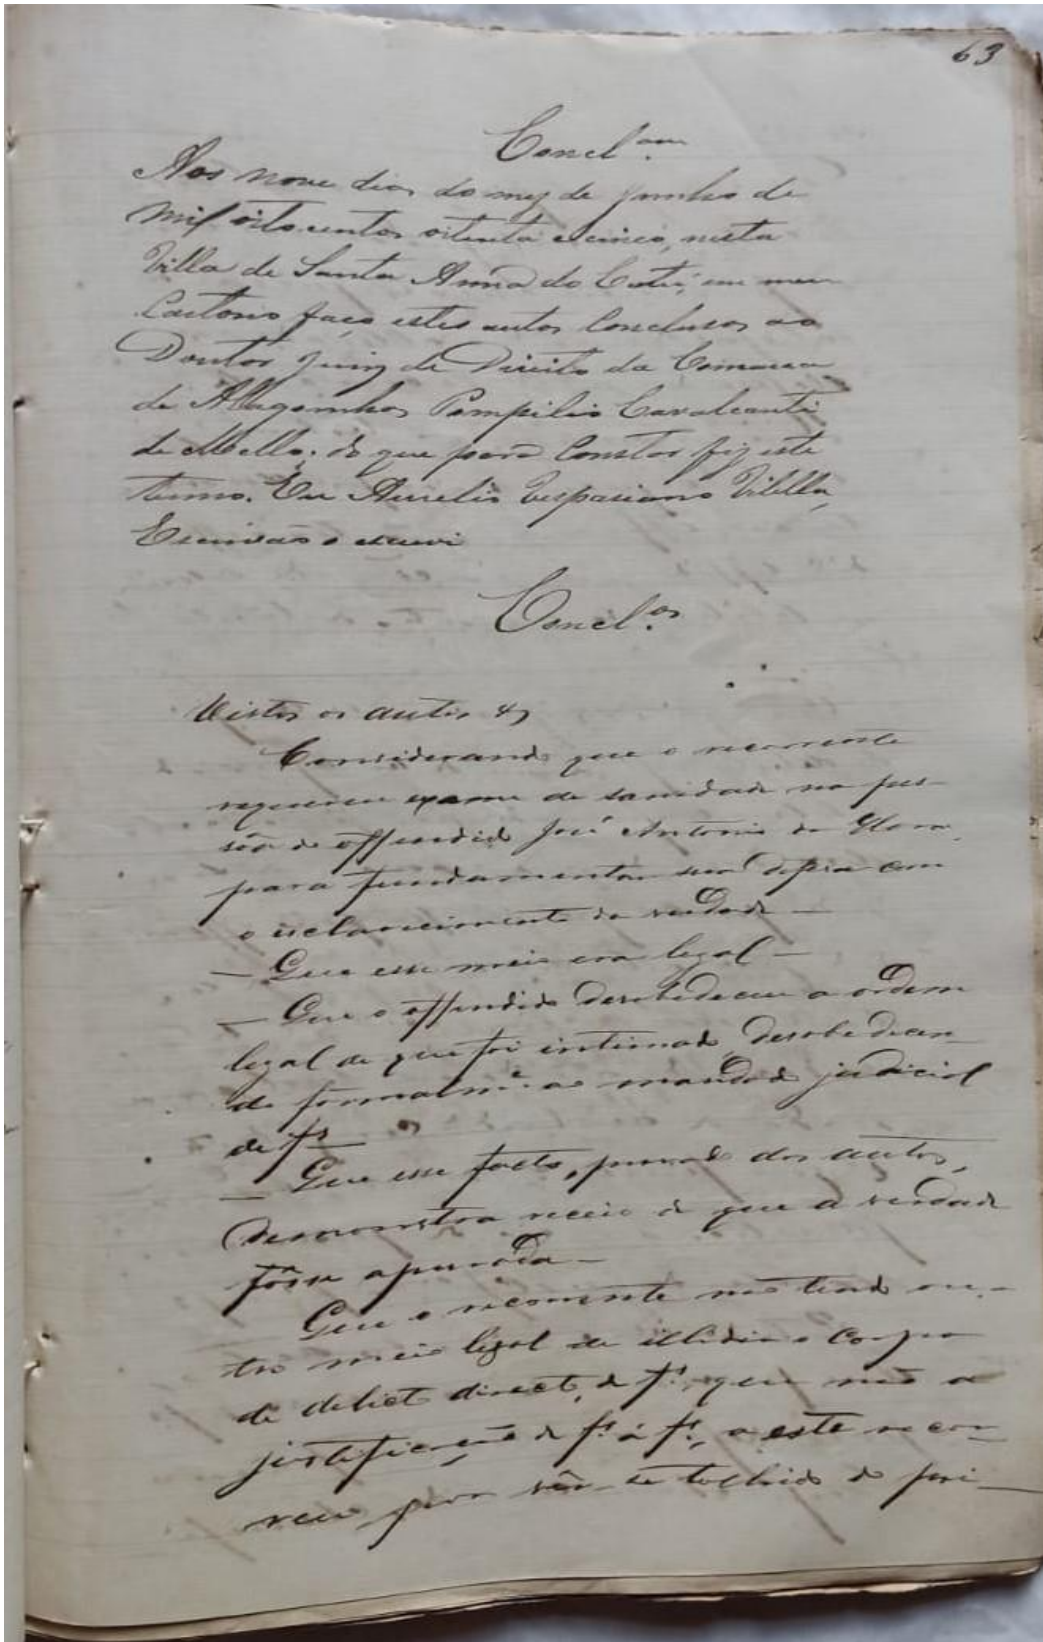 63
Concl.am
Aos nove dias do mez de Junho de
mil oito centos oitenta e cinco, nesta
Villa de Santa Anna do Catú, em meu
Cartorio faço estes autos conclusos ao
Doutor Juiz de Direito da Comarca
de Alagoinhas Pompilio Cavalcanti
de Mello; do que para constar fiz este
termo. Eu Aurelio Vespasiano Vilella,
Escrivão o escrevi
Concl.os
Vistos os autos &
Considerando que o recorrente
requereu exame de sanidade na pes-
sôa do offendido José Antonio da
para fundamentar sua defeza com
o esclarecimento da verdade —
— Que esse meio era legal —
— Que o offendido desobedeceu a ordem
legal de que foi intimado, desobedecen-
do formalm.e ao mandado judicial
de fs
— Que esse facto, provado dos autos,
demonstra receio de que a verdade
fôsse apurada —
Que o recorrente não tendo ou-
tro meio legal de illidir o corpo
de delicto directo, de f.s, que não a
justificação de f.s á f.s, a este recor-
reu, por vêr-se tolhido do pri-